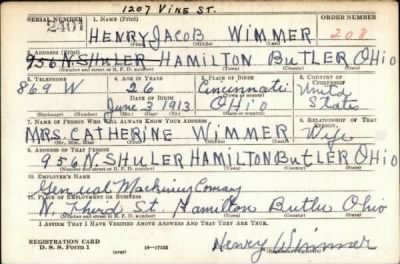 1207 VINE ST.
SERIAL NUMBER 1. NAME (Print) ORDER NUMBER
2401 HENRY JACOB WIMMER 208
(First) (Middle) (Last)
2. ADDRESS (Print)
956 N. SHULER HAMILTON BUTLER OHIO
(Number and street or R. F. D. number) (Town) (County) (State)
3. TELEPHONE 4. AGE IN YEARS 5. PLACE OF BIRTH 6. COUNTRY OF CITIZENSHIP
869 W 26 Cincinnati United
DATE OF BIRTH (Town or county)
June 3 1913 OHIO States
(Exchange) (Number) (Mo.) (Day) (Yr.) (State or country)
7. NAME OF PERSON WHO WILL ALWAYS KNOW YOUR ADDRESS 8. RELATIONSHIP OF THAT PERSON
MRS. CATHERINE WIMMER Wife
(Mr., Mrs., Miss) (First) (Middle) (Last)
9. ADDRESS OF THAT PERSON
956 N. SHULER HAMILTON BUTLER OHIO
(Number and street or R. F. D. number) (Town) (County) (State)
10. EMPLOYER'S NAME
General Machinery Comany
11. PLACE OF EMPLOYMENT OR BUSINESS
N. Third St. Hamilton Butler Ohio
(Number and street or R. F. D. number) (Town) (County) (State)
I AFFIRM THAT I HAVE VERIFIED ABOVE ANSWERS AND THAT THEY ARE TRUE.
REGISTRATION CARD
D. S. S. Form 1 (over) 16—17105 Henry Wimmer